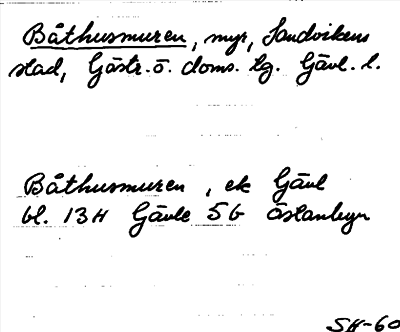 Båthusmuren, myr, Sandvikens
stad, Gästr. ö. doms. lg. Gävl. l.
Båthusmuren, ek Gävl
bl. 13H Gävle 5b Östanbyn
SH-60